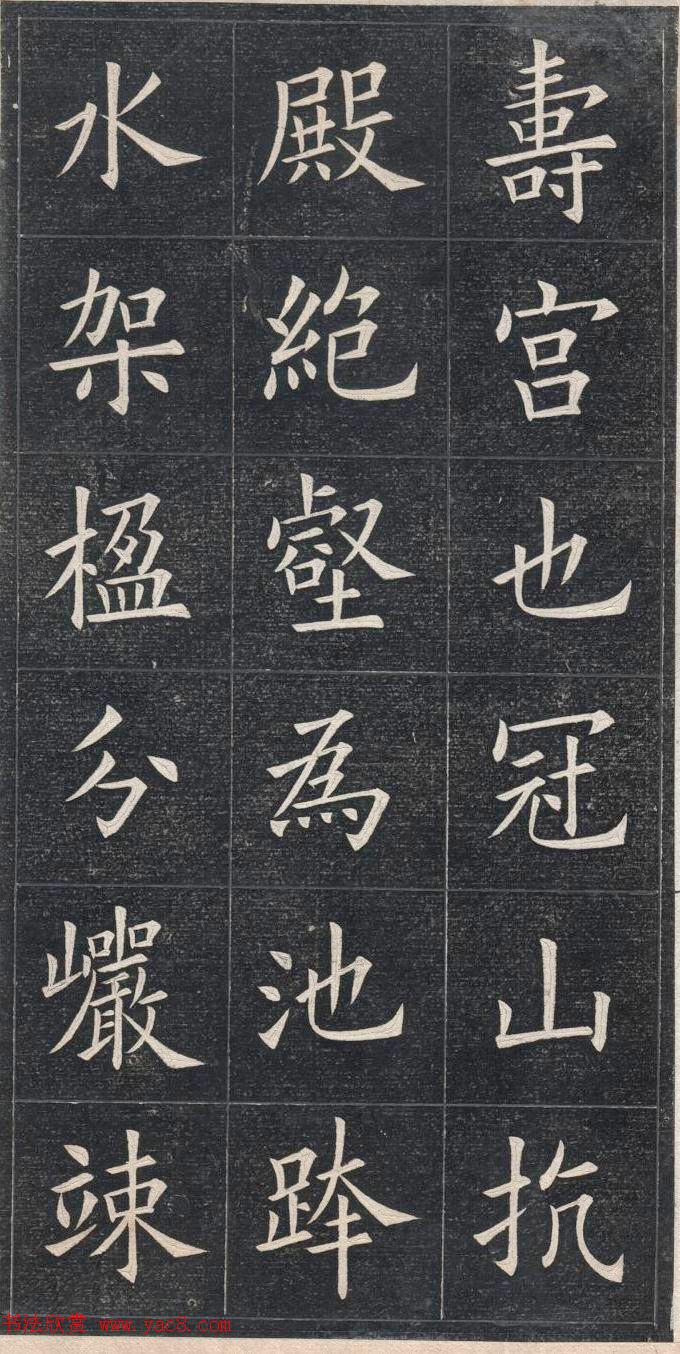 壽宮也冠山抗
殿絶壑為池跨
水架楹分巖竦
书法欣赏 www.yac8.com